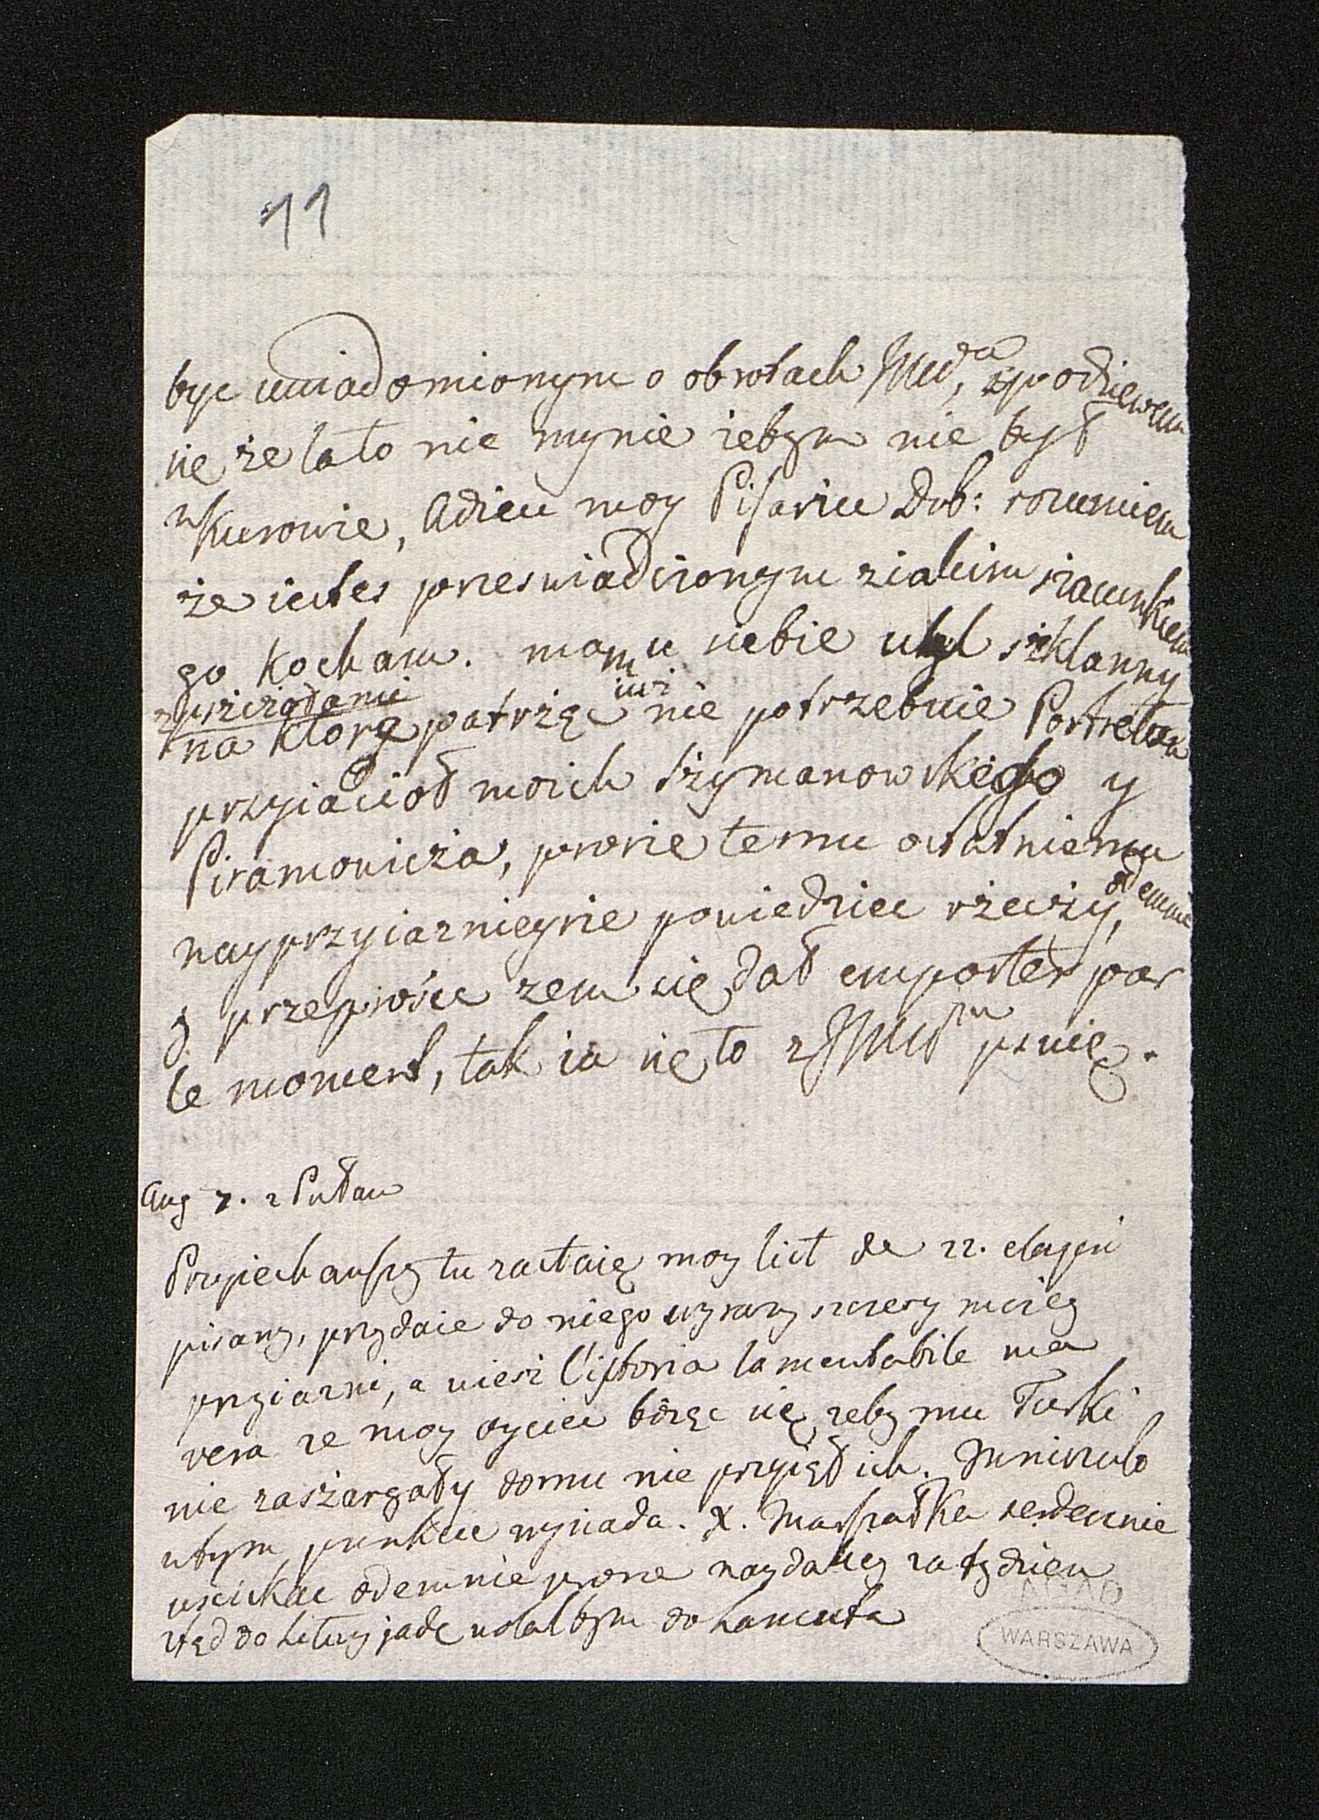 11
być uwiadomionym o obrotach JMci, spodziewam
się że lato nie mynie żebym nie był
w Kurowie, Adieu moy Pisarzu Dob: rozumiem
że iestes przeswiadczonym z iakim szacunkiem
go kocham. mam u siebie szklanny
z pieczątami
na ktorę patrżąc iuż nie potrzebuie Portretow
przyiaciół moich Szymanowskiego y
Piramowicza, proszę temu ostatniemu
nayprzyiaznieysze powiedziec rzeczy, odemnie
y przeprosic zem się dał emporter par
le moment, tak ia się to z JMcią psuię.
Aug 7. z Puław
Przyiechawszy tu zastaię moy list de 22. elapsi
pisany, przydaie do niego wyrazy szczerey moiey
przyiazni, a niesi l'istoria lamentabile ma
vera ze moy oyciec boiąc się zeby mu Turki
nie zaszargały domu nie przyiął ich. Mniszech
w tym punkcie wysiada. X. Marszałka serdecznie
usciskac odemnie prosze naydaley za tydzien
ztąd do Litwy jadę do Lancuta
AGAD
WARSZAWA